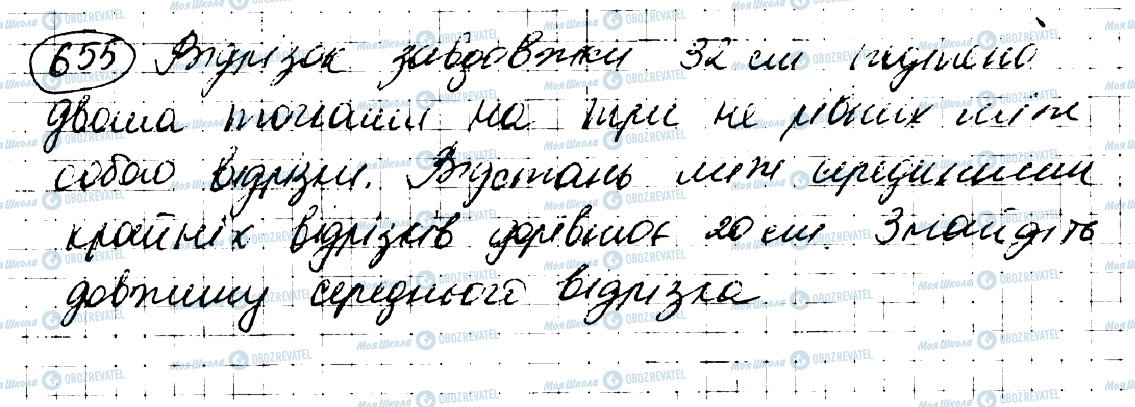 655 Відрізок завдовжки 32 см поділено
двома точками на три не рівних між
собою відрізки. Відстань між серединами
крайніх відрізків дорівнює 20 см. Знайдіть
довжину середнього відрізка